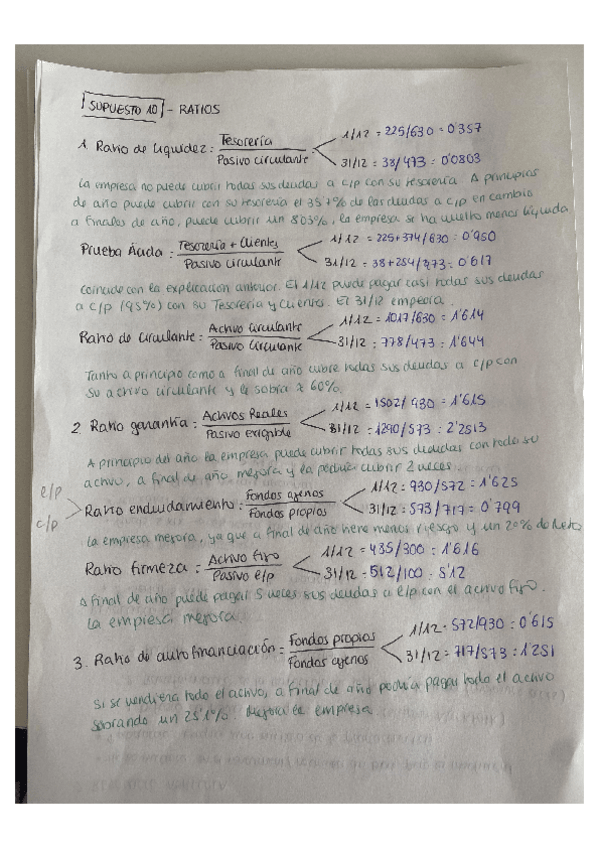 SUPUESTO 10 - RATIOS
1. Ratio de liquidez: Tesorería / Pasivo circulante
1/12 = 225/630 = 0'357
31/12 = 38/473 = 0'0803
La empresa no puede cubrir todas sus deudas a c/p con su tesorería. A principios
de año puede cubrir con su tesorería el 35'7% de las deudas a c/p en cambio
a finales de año, puede cubrir un 8'03%, la empresa se ha vuelto menos líquida
Prueba Ácida: Tesorería + Clientes / Pasivo circulante
1/12 = 225+374/630 = 0'950
31/12 = 38+254/473 = 0'617
Coincide con la explicación anterior. El 1/12 puede pagar casi todas sus deudas
a c/p (95%) con su Tesorería y Clientes. El 31/12 empeora.
Ratio de circulante: Activo circulante / Pasivo circulante
1/12 = 1017/630 = 1'614
31/12 = 778/473 = 1'644
Tanto a principio como a final de año cubre todas sus deudas a c/p con
su activo circulante y le sobra ≈ 60%.
2. Ratio garantía: Activos Reales / Pasivo exigible
1/12 = 1502/930 = 1'615
31/12 = 1290/573 = 2'2513
A principio del año la empresa puede cubrir todas sus deudas con todo su
activo, a final de año mejora y la podría cubrir 2 veces.
e/p
c/p
Ratio endeudamiento: Fondos ajenos / Fondos propios
1/12 = 930/572 = 1'625
31/12 = 573/717 = 0'799
La empresa mejora, ya que a final de año tiene menos riesgo y un 20% de Neto
Ratio firmeza: Activo fijo / Pasivo e/p
1/12 = 435/300 = 1'616
31/12 = 512/100 = 5'12
A final de año puede pagar 5 veces sus deudas a e/p con el activo fijo.
La empresa mejora.
3. Ratio de autofinanciación: Fondos propios / Fondos ajenos
1/12 = 572/930 = 0'615
31/12 = 717/573 = 1'251
Si se vendiera todo el activo, a final de año podría pagar todo el activo
sobrando un 25'1%. Mejora la empresa